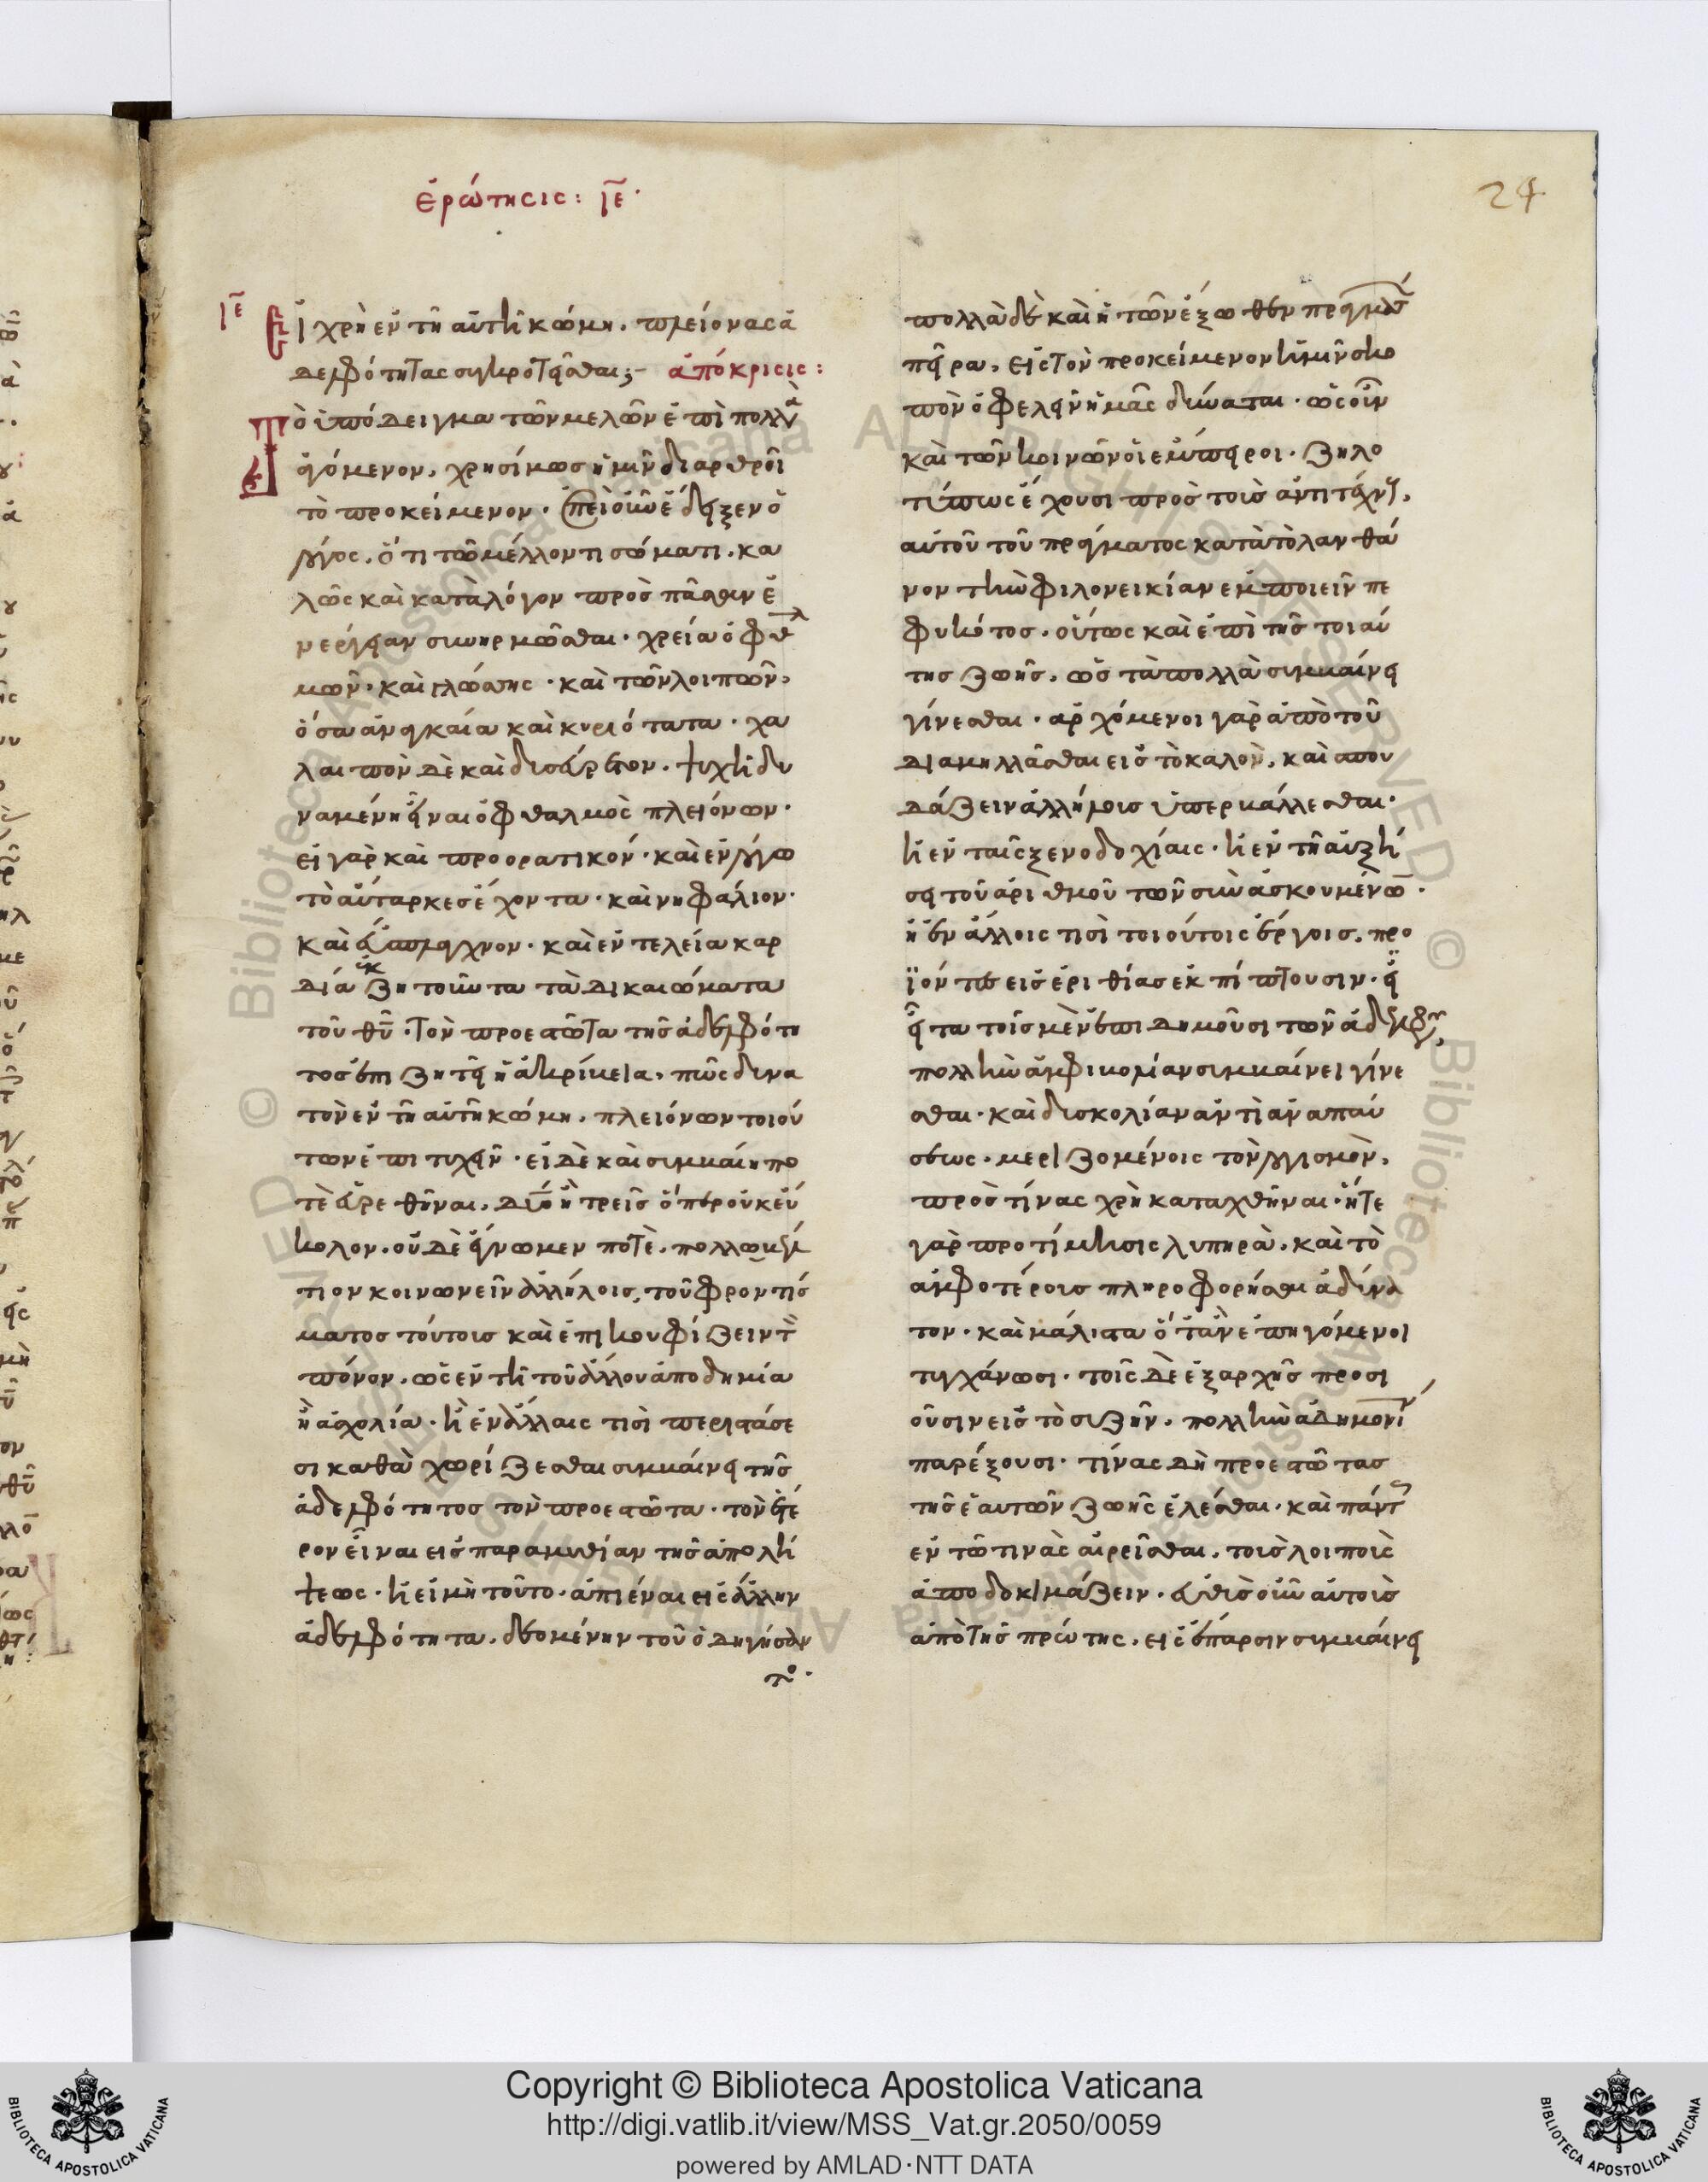 ἐρώτησις: ιε·
24
ιε Εἰ χρὴ ἐν τῇ αὐτῆ κώμη. πλείονας ἀ
δελφότητας συγκροτεῖσθαι; ἀπόκρισις:
Τὸ ὑπόδειγμα τῶν μελῶν ἐπὶ πολλὰ
ἀγόμενον, χρησίμως ἡμῖν διαρθροῖ
τὸ προκείμενον. ἐπεὶ οὖν ἔδειξεν ὁ
λόγος. ὅτι τῶ μέλλοντι σώματι. κα
λῶς καὶ κατὰ λόγον πρὸς πᾶσαν ἐ
νέργειαν συνηρμῶσθαι. χρεία ὀφθαλ
μῶν. καὶ γλώσσης. καὶ τῶν λοιπῶν,
ὅσα ἀναγκαία καὶ κυριότατα. χα
λαιπὸν δὲ καὶ δυσεύρετον. ψυχὴ δυ
ναμένη εἶναι ὀφθαλμὸς πλειόνων.
εἰ γὰρ καὶ προορατικόν. καὶ ἐν λόγω
τὸ αὔταρκες ἔχοντα. καὶ νηφάλιον.
καὶ εὔσπλαγχνον. καὶ ἐν τελεία καρ
δία ἐκζητοῦντα τὰ δικαιώματα
τοῦ θυ. Τὸν προεστῶτα τῆς ἀδελφότη
τος ἐπιζητεῖ ἡ ἀκρίβεια, πῶς δυνα
τὸν ἐν τῇ αὐτῇ κώμη. πλειόνων τοιού
των ἐπιτυχεῖν. εἰ δὲ καὶ συμβαίη πο
τὲ εὑρεθῆναι. δύο ἢ τρεῖς ὅπερ οὐκ εὔ
κολον. οὐδὲ ἔγνωμεν ποτὲ. πολλῶ βέλ
τιον κοινωνεῖν ἀλλήλοις, τοῦ φροντίσ
ματος τούτοις καὶ ἐπικουφίζειν τὸν
πόνον. ὡς ἐν τῆ τοῦ ἄλλου ἀποδημία
ἢ ἀσχολία. ἢ ἐν ἄλλαις τισὶ περιστάσε
σι καθὰ χωρίζεσθαι συμβαίνει τῆς
ἀδελφότητος τὸν προεστῶτα. τὸν ἕτε
ρον εἶναι εἰς παραμυθίαν τῆς ἀπολή
ψεως. ἢ εἰ μὴ τοῦτο. ἀπιέναι εἰς ἄλλην
ἀδελφότητα. δεομένην τοῦ ὁδηγήσον
τος.
πολλὰ δὲ καὶ ἡ τῶν ἔξωθεν πραγμάτων
πεῖρα, εἰς τὸν προκείμενον ἡμῖν σκο
πὸν ὀφελεῖν ἡμᾶς δύναται. ὡς οὖν
καὶ τῶν κοινῶν οἱ ἔμπειροι. ζηλο
τύπως ἔχουσι πρὸς τοὺς ἀντιτέχνους,
αὐτοῦ τοῦ πράγματος κατὰ τὸ λανθά
νον τὴν φιλονεικίαν ἐμποιεῖν πε
φυκότος. οὕτως καὶ ἐπὶ τῆς τοιαύ
της ζωῆς. ὡς τὰ πολλὰ συμβαίνει
γίνεσθαι. ἀρχόμενοι γὰρ ἀπὸ τοῦ
διαμιλλᾶσθαι εἰς τὸ καλὸν, καὶ σπου
δάζειν ἀλλήλους ὑπερβάλλεσθαι.
ἢ ἐν ταῖς ξενοδοχίαις. ἢ ἐν τῆ αὐξή
σει τοῦ ἀριθμοῦ τῶν συνασκουμένων.
ἢ ἐν ἄλλοις τισὶ τοιούτοις ἔργοις. προ
ϊόντες εἰς ἐριθίας ἐκπίπτουσιν. εἶ
εἶτα τοῖς μὲν ἐπιδημοῦσι τῶν ἀδελφῶν,
πολλὴν ἀμφιβολίαν συμβαίνει γίνε
σθαι. καὶ δυσκολίαν ἀντὶ ἀναπαύ
σεως. μεριζομένοις τὸν λογισμὸν,
πρὸς τίνας χρὴ καταχθῆναι. ἥτε
γὰρ προτίμησις λυπηρὰ. καὶ τὸ
ἀμφοτέροις πληροφορῆσθαι ἀδύνα
τον. καὶ μάλιστα ὅταν ἐπηγόμενοι
τυγχάνωσι. τοῖς δὲ ἐξαρχῆς προσι
οῦσιν εἰς τὸ συζῆν. πολλὴν ἀδημονίαν
παρέξουσι. τίνας δὴ προεστῶτας
τῆς ἑαυτῶν ζωῆς ἑλέσθαι. καὶ πάντως
ἐν τῶ τινὰς αἱρεῖσθαι. τοὺς λοιποὺς
ἀποδοκιμάζειν. εὐθὺς οὖν αὐτοὺς
ἀπὸ τῆς πρώτης, εἰς ἔπαρσιν συμβαίνει
Copyright © Biblioteca Apostolica Vaticana
http://digi.vatlib.it/view/MSS_Vat.gr.2050/0059
powered by AMLAD·NTT DATA